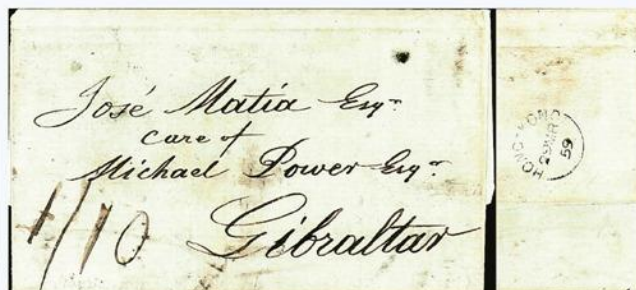 José Matia Esqr
care of
Michael Power Esqr
Gibraltar
1/10
HONG KONG
29 MR
59